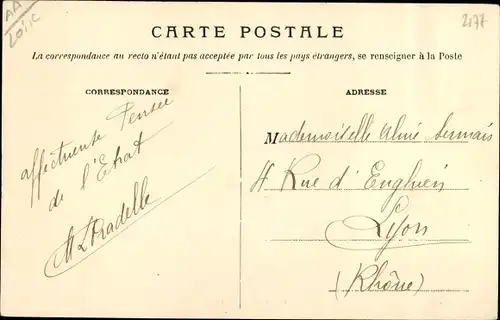 AA
LOIRE
2177
CARTE POSTALE
La correspondance au recto n'étant pas acceptée par tous les pays étrangers, se renseigner à la Poste
CORRESPONDANCE
affectueuse Pensée
de l'Etrat
ADRESSE
Mademoiselle
4 Rue d'Enghien
Lyon
(Rhône)